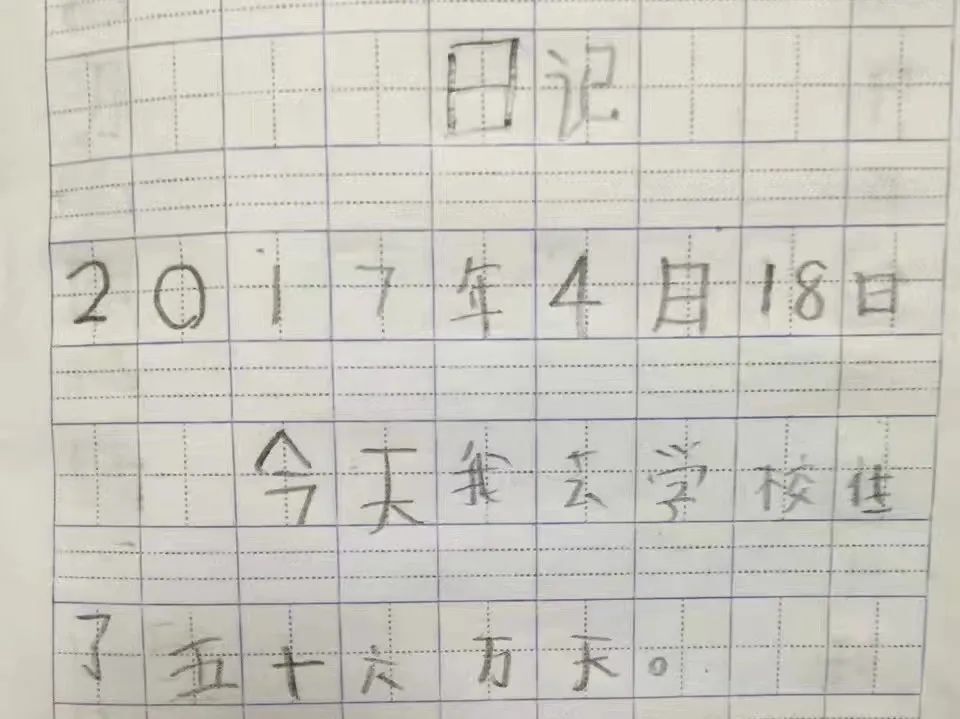 日记
2017年4日18日
今天我去学校住
了五十六万天。